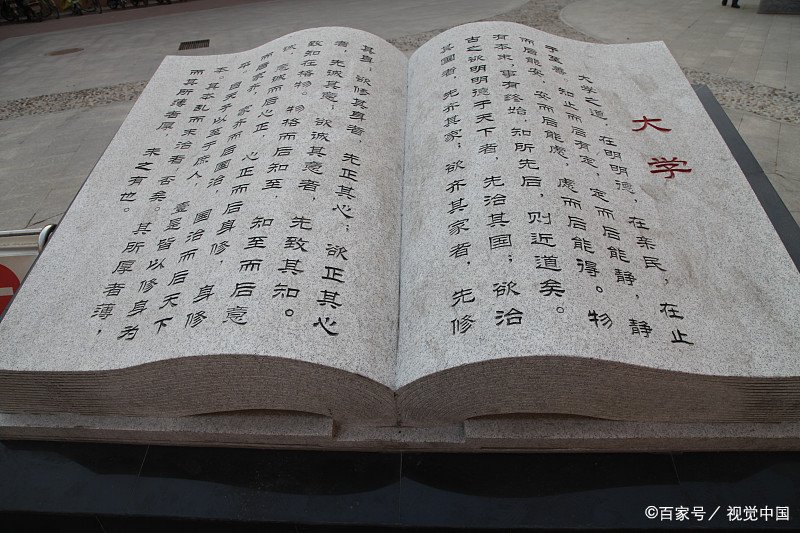 大学
大学之道，在明明德，在亲民，在止
于至善。知止而后有定，定而后能静，静
而后能安，安而后能虑，虑而后能得。物
有本末，事有终始，知所先后，则近道矣。
古之欲明明德于天下者，先治其国；欲治
其国者，先齐其家；欲齐其家者，先修
其身；欲修其身者，先正其心；欲正其心
者，先诚其意；欲诚其意者，先致其知。
致知在格物。物格而后知至，知至而后意
诚，意诚而后心正，心正而后身修，身修
而后家齐，家齐而后国治，国治而后天下
平。自天子以至于庶人，壹是皆以修身为
本。其本乱而末治者，否矣。其所厚者薄，
而其所薄者厚，未之有也。
©百家号／视觉中国